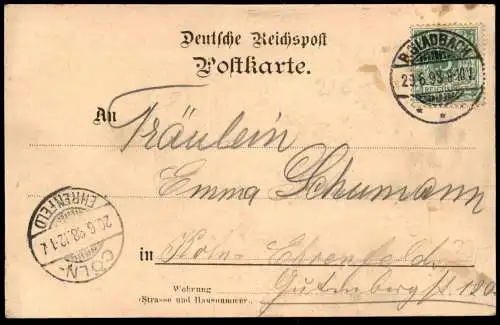 Deutsche Reichspost
Postkarte.
B. GLADBACH
29.6.98. 9-10 V.
An Fräulein
Emma Schumann
in Köln-Ehrenfeld
Gutenberg st 120
Wohnung
(Strasse und Hausnummer)
CÖLN-EHRENFELD
29.6.98. 12-1